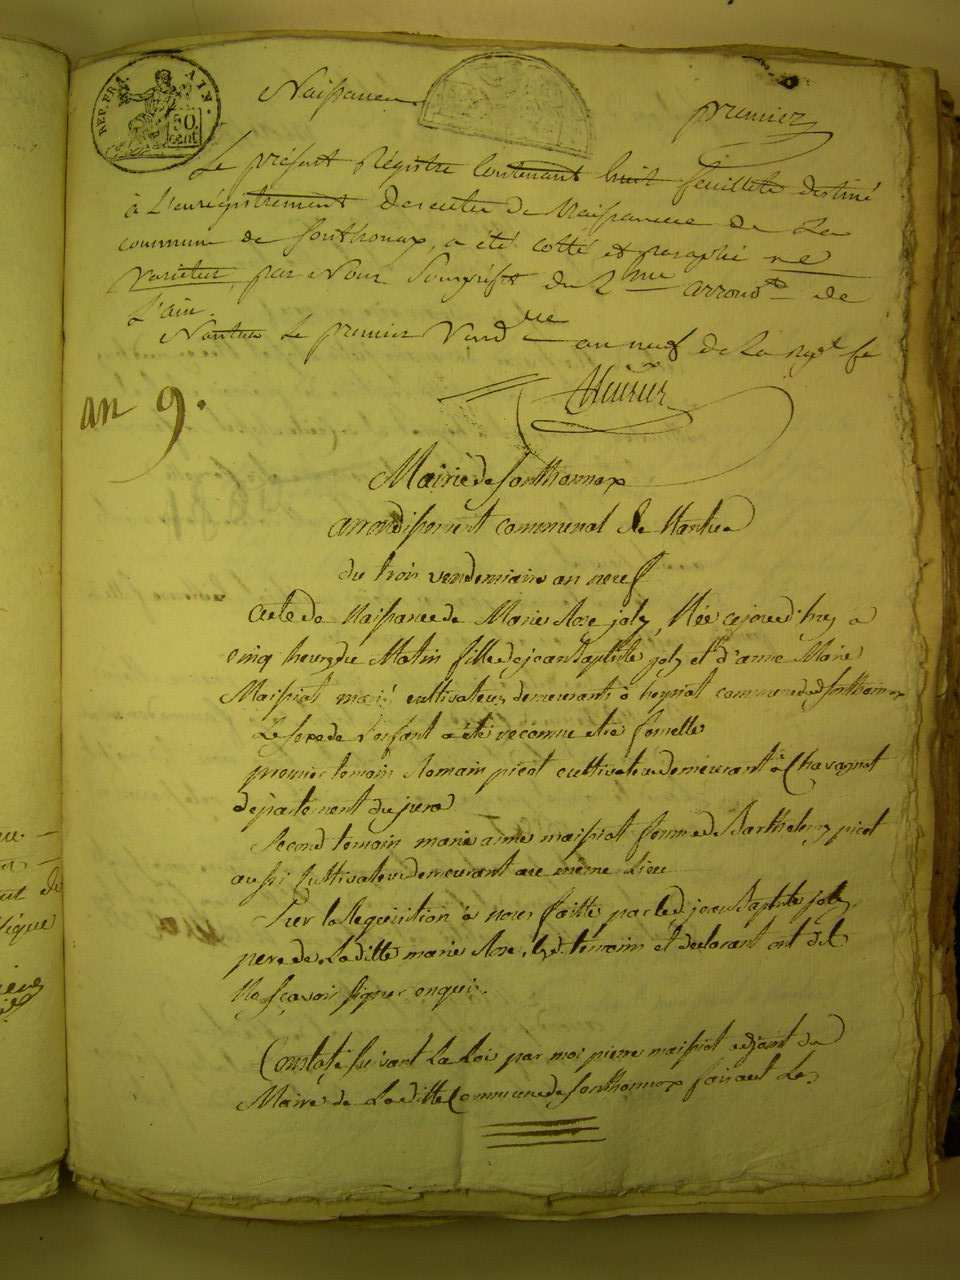 REP. FRA. AIN.
50 cent
Naissances
premier
Le présent Régistre Contenant huit feuillets destiné
à L'enrégistrement des actes de Naissance de La
commune de Sonthonax, a été cotté et paraphé ne
varietur, par Nous Sousprefet du 2me arrondt de
L'ain.
Nantua Le premier Vendre an neuf de La rep. fe
an 9.
Mairie de Sonthonnax
arrondissement communal de Nantua
du trois vendemiaire an neuf
acte de Naissance de Marie Rose joly, Née cejourd'huy a
cinq heures du Matin fille de jean Baptiste joly et d'anne Marie
Maissiat mariés cultivateurs demeurants à heyriat commune de Sonthonnax
Le sexe de L'enfant a été reconnu etre femelle
premier temoin Romain picot cultivateur demeurant à Chavagnat
departement du jura
Second temoin marie anne maissiat femme de Barthelemy picot
aussi Cultivateur demeurant au même Lieu
Sur la Requisition à nous faitte par led. jean Baptiste joly
pere de Laditte marie Rose, les d. temoins et declarant ont dit
Ne sçavoir signer enquis.
Constaté suivant La Loi par moi pierre maissiat adjoint du
Maire de Laditte Commune de Sonthonnax faisant Les